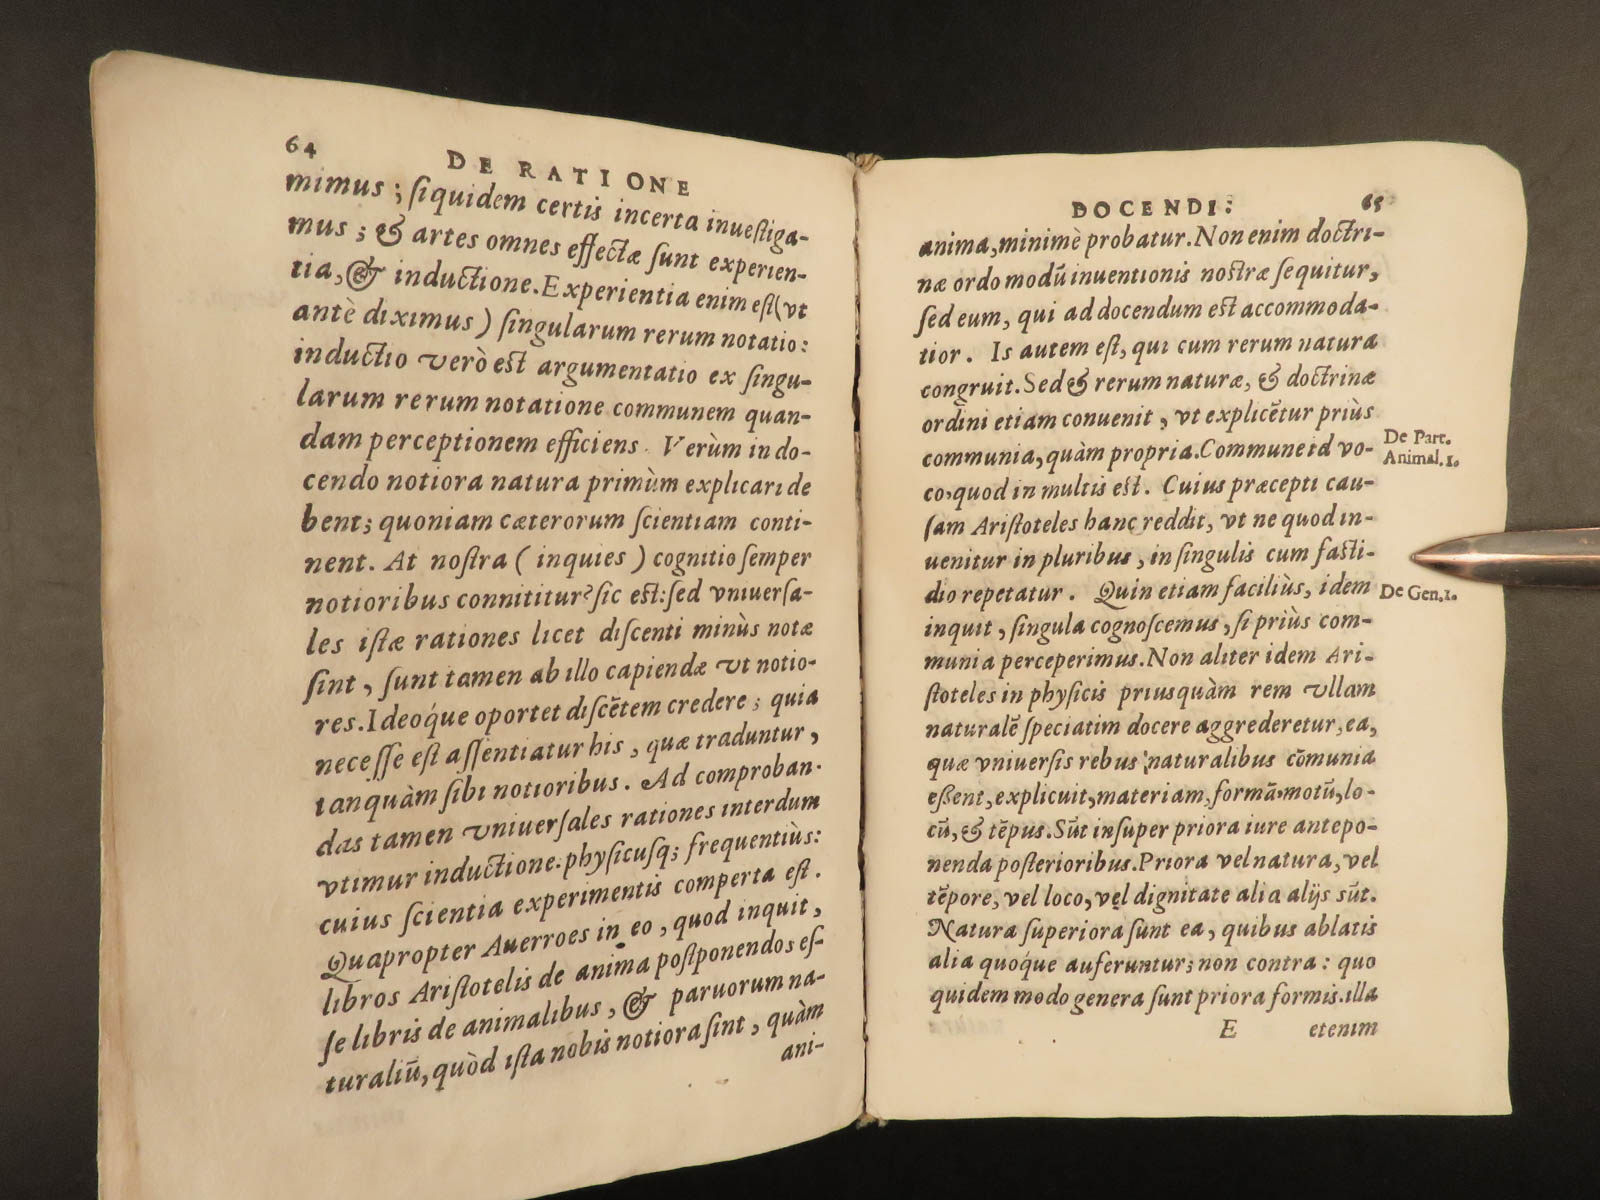 64
DE RATIONE
mimus; ſiquidem certis incerta inueſtiga-
mus; & artes omnes effectæ ſunt experien-
tia, & inductione. Experientia enim eſt (vt
antè diximus) ſingularum rerum notatio:
inductio verò est argumentatio ex ſingu-
larum rerum notatione communem quan-
dam perceptionem efficiens. Verùm in do-
cendo notiora natura primùm explicari de
bent; quoniam cæterorum ſcientiam conti-
nent. At noſtra (inquies) cognitio ſemper
notioribus connititur? ſic est: ſed vniuerſa-
les istæ rationes licet diſcenti minùs notæ
ſint, ſunt tamen ab illo capiendæ vt notio-
res. Ideoq́ue oportet diſcẽtem credere; quia
neceſſe eſt aſſentiatur his, quæ traduntur,
tanquàm ſibi notioribus. Ad comproban-
das tamen vniuerſales rationes interdum
vtimur inductione: phyſicuſq; frequentiùs:
cuius ſcientia experimentis comperta eſt.
Quapropter Auerroes in eo, quod inquit,
libros Ariſtotelis de anima poſtponendos eſ-
ſe libris de animalibus, & paruorum na-
turaliũ, quòd iſta nobis notiora ſint, quàm
ani-
DOCENDI:
65
anima, minimè probatur. Non enim doctri-
næ ordo modũ inuentionis nostræ ſequitur,
ſed eum, qui ad docendum est accommoda-
tior. Is autem eſt, qui cum rerum natura
congruit. Sed & rerum naturæ, & doctrinæ
ordini etiam conuenit, vt explicẽtur priùs
communia, quàm propria. Commune id vo-
co, quod in multis est. Cuius præcepti cau-
ſam Ariſtoteles hanc reddit, vt ne quod in-
uenitur in pluribus, in ſingulis cum faſti-
dio repetatur. Quin etiam faciliùs, idem
inquit, ſingula cognoſcemus, ſi priùs com-
munia perceperimus. Non aliter idem Ari-
ſtoteles in phyſicis priusquàm rem vllam
naturalẽ ſpeciatim docere aggrederetur, ea,
quæ vniuerſis rebus naturalibus cõmunia
eßent, explicuit, materiam, formã, motũ, lo-
cũ, & tẽpus. Sũt inſuper priora iure antepo-
nenda poſterioribus. Priora vel natura, vel
tẽpore, vel loco, vel dignitate alia alijs sũt.
Natura ſuperiora ſunt ea, quibus ablatis
alia quoq́ue auferuntur; non contra: quo
quidem modo genera ſunt priora formis. illa
E etenim
De Part.
Animal. 1.
De Gen. 1.